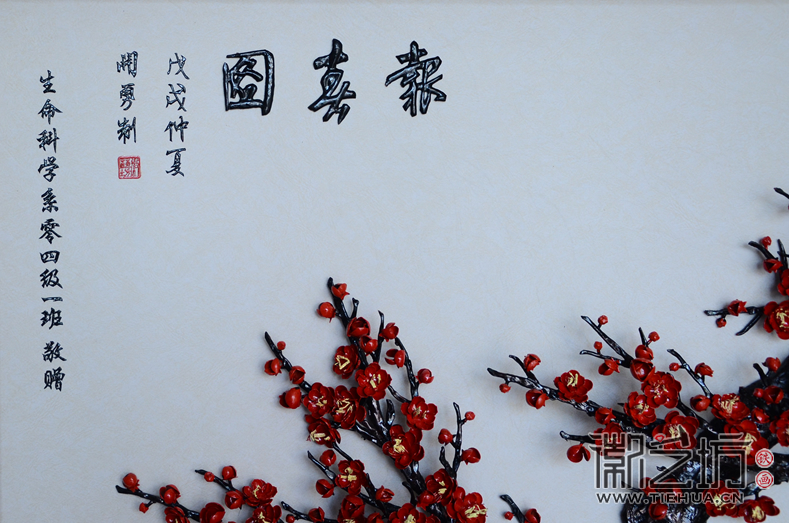 報春圖
戊戌仲夏
開勇制
生命科学系零四级一班 敬赠
徽之坊
铁画
WWW.TIEHUA.CN